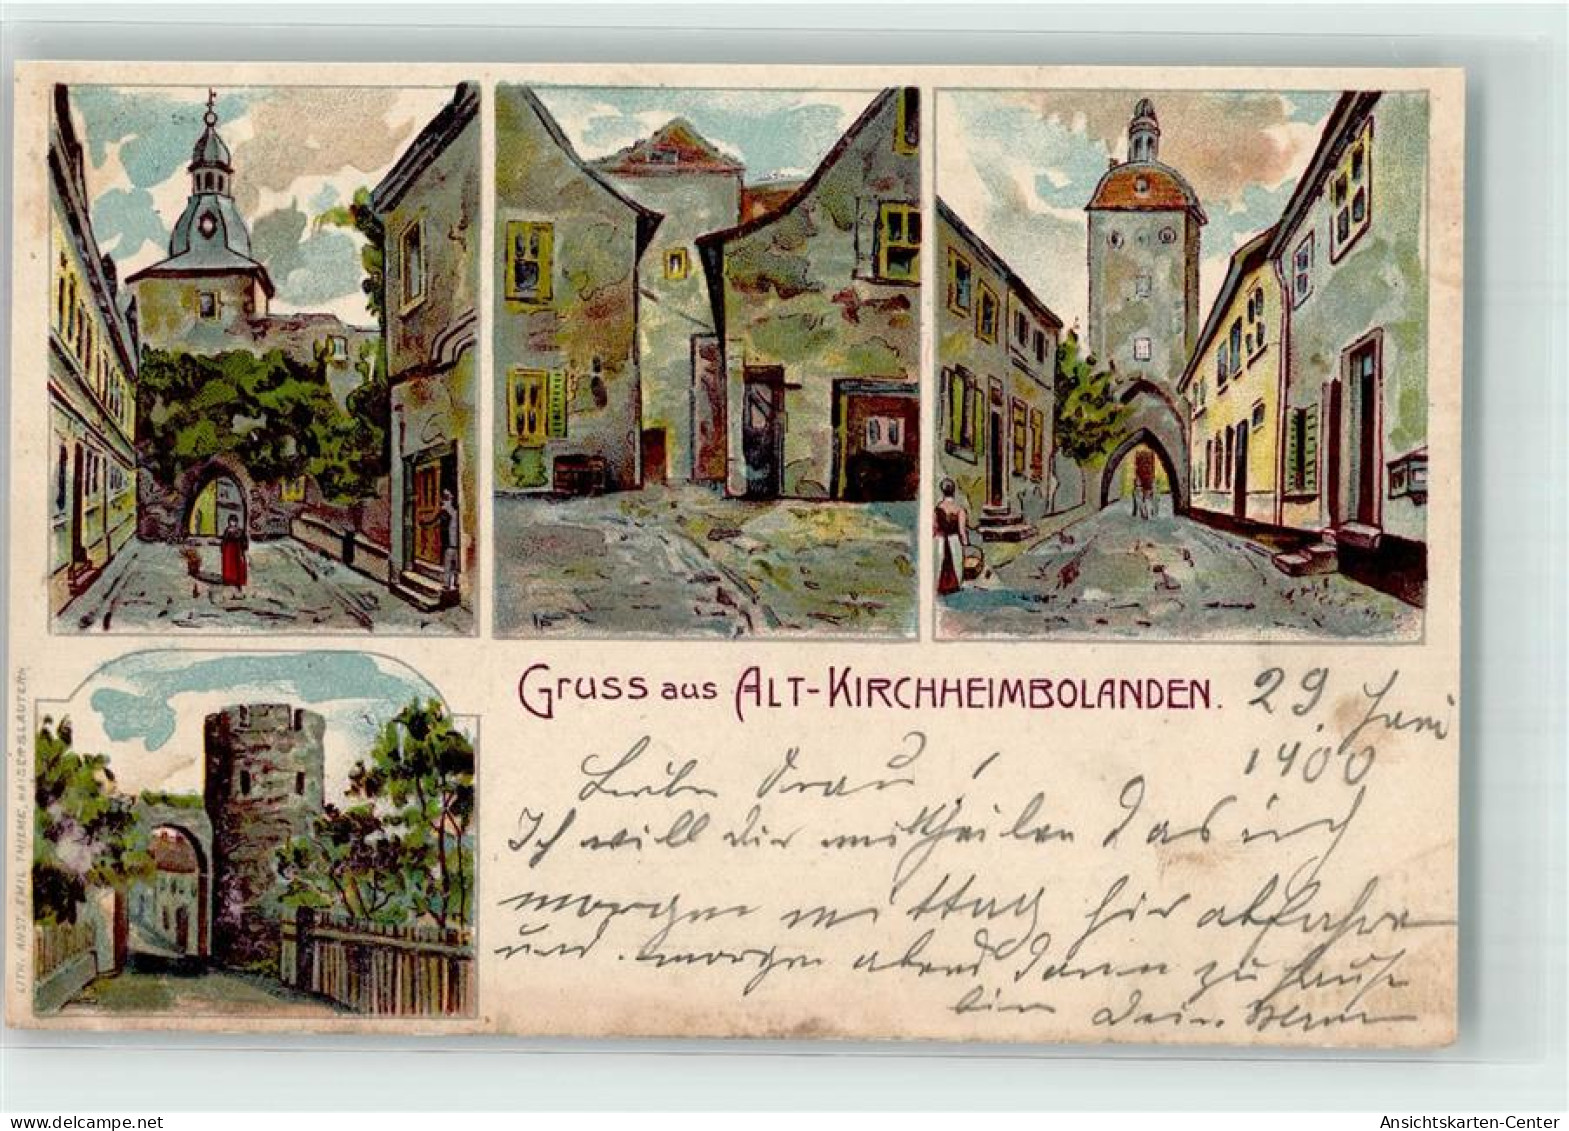 Gruss aus Alt-Kirchheimbolanden.
29. Juni
1900
Liebe Frau!
Ich will dir mittheilen das ich
morgen mittag hier abfahre
und morgen abend dann zu hause
bin Dein
LITH. ANST. EMIL THIEME, KAISERSLAUTERN
AnsichtsKarten-Center